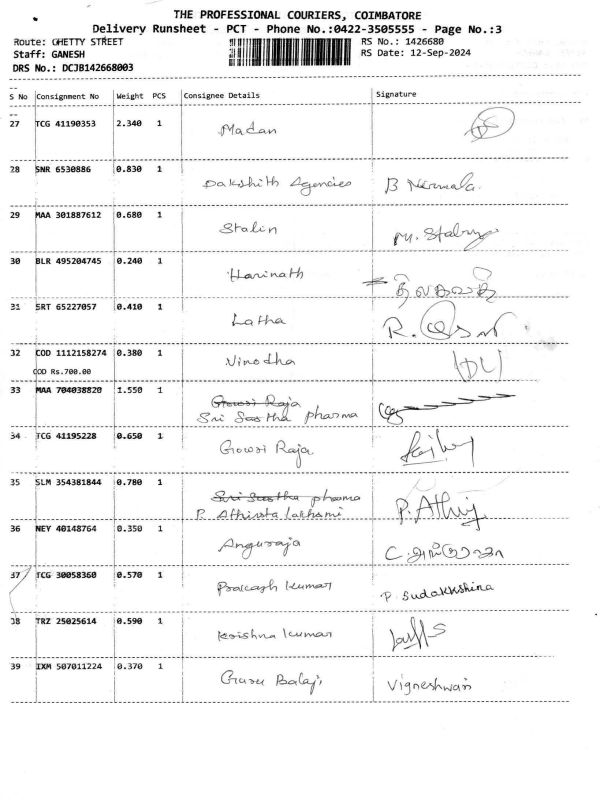 THE PROFESSIONAL COURIERS, COIMBATORE
Delivery Runsheet - PCT - Phone No.:0422-3505555 - Page No.:3
Route: GHETTY STREET RS No.: 1426680
Staff: GANESH RS Date: 12-Sep-2024
DRS No.: DCJB142668003
S No Consignment No Weight PCS Consignee Details Signature
27 TCG 41190353 2.340 1 Madan
28 SNR 6530886 0.830 1 Dakshith Agencies B Nirmala.
29 MAA 301887612 0.680 1 Stalin M.
30 BLR 495204745 0.240 1 Harinath
31 SRT 65227057 0.410 1 Latha R.
32 COD 1112158274 0.380 1 Vinodha
COD Rs.700.00
33 MAA 704038820 1.550 1 Gowri Raja
Sri Sastha pharma
34 TCG 41195228 0.650 1 Gowri Raja
35 SLM 354381844 0.780 1 Sri Sastha pharma
P. Athivota lakhsmi P. Athij
36 NEY 40148764 0.350 1 Anguraja C.
37 TCG 30058360 0.570 1 Prakash kumar P. Sudakkshina
38 TRZ 25025614 0.590 1 Krishna kumar
39 IXM 507011224 0.370 1 Guru Balaji Vigneshwari